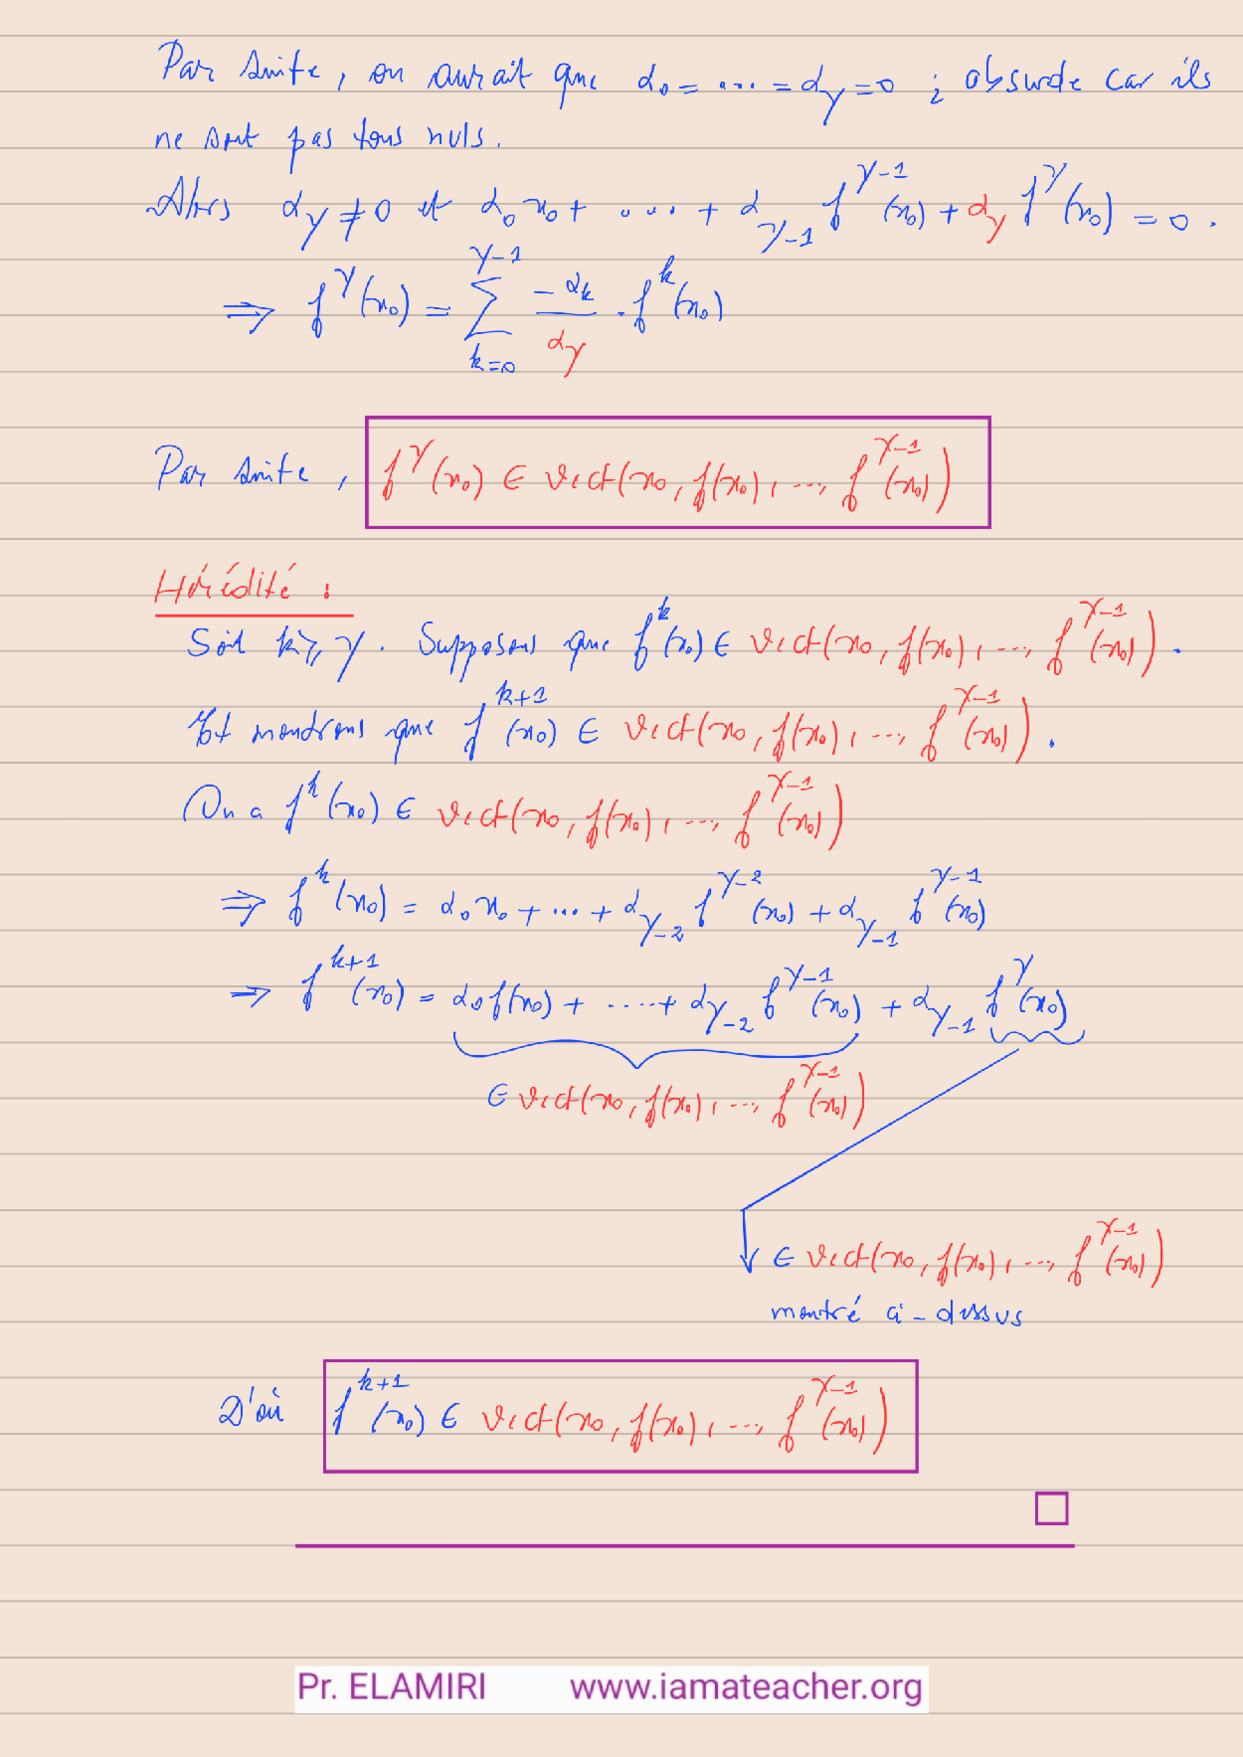 Par suite, on aurait que α₀ = ... = α_γ = 0 ; absurde car ils
ne sont pas tous nuls.
Alors α_γ ≠ 0 et α₀x₀ + .... + α_{γ-1} f^{γ-1}(x₀) + α_γ f^γ(x₀) = 0.
⇒ f^γ(x₀) = ∑_{k=0}^{γ-1} \frac{-α_k}{α_γ} . f^k(x₀)
Par suite, f^γ(x₀) ∈ Vect(x₀, f(x₀), ..., f^{γ-1}(x₀))
Hérédité :
Soit k ⩾ γ. Supposons que f^k(x₀) ∈ Vect(x₀, f(x₀), ..., f^{γ-1}(x₀)).
Et montrons que f^{k+1}(x₀) ∈ Vect(x₀, f(x₀), ..., f^{γ-1}(x₀)).
On a f^k(x₀) ∈ Vect(x₀, f(x₀), ..., f^{γ-1}(x₀))
⇒ f^k(x₀) = α₀x₀ + ... + α_{γ-2} f^{γ-2}(x₀) + α_{γ-1} f^{γ-1}(x₀)
⇒ f^{k+1}(x₀) = α₀f(x₀) + ....+ α_{γ-2} f^{γ-1}(x₀) + α_{γ-1} f^γ(x₀)
∈ Vect(x₀, f(x₀), ..., f^{γ-1}(x₀))
∈ Vect(x₀, f(x₀), ..., f^{γ-1}(x₀))
montré ci-dessus
D'où f^{k+1}(x₀) ∈ Vect(x₀, f(x₀), ..., f^{γ-1}(x₀))
Pr. ELAMIRI www.iamateacher.org